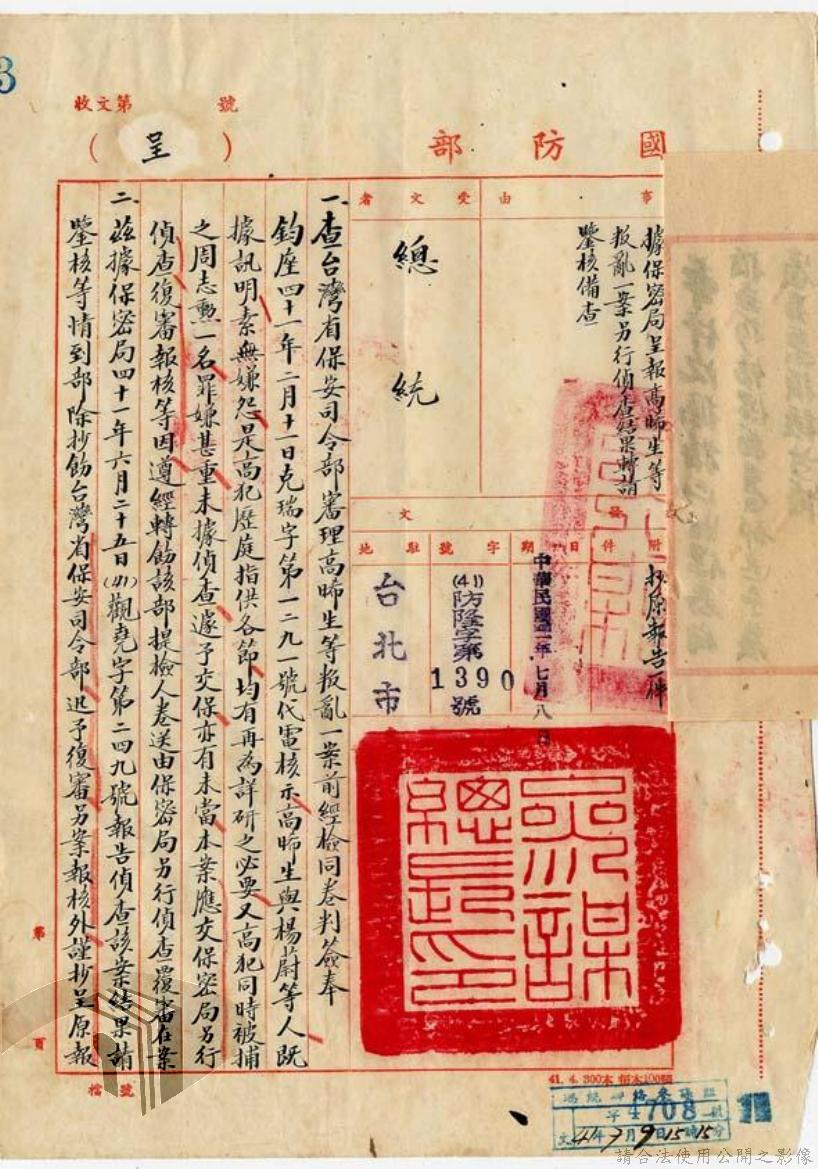 國防部
（呈）
收文第　　號
事由
據保密局呈報高晞生等
叛亂一案另行偵查結果轉請
鑒核備查
受文者
總統
附件
抄原報告一件
發文
日期
中華民國四十一年七月八日
字號
(41)防隆字第
1390
號
駐地
台北市
一、查台灣省保安司令部審理高晞生等叛亂一案前經檢同卷判簽奉
鈞座四十一年二月十一日克瑞字第一二九一號代電核示高晞生與楊蔚等人既
據訊明素無嫌怨是高犯歷庭指供各節均有再為詳研之必要又高犯同時被捕
之周志勳一名罪嫌甚重未據偵查遽予交保亦有未當本案應交保密局另行
偵查復審報核等因遵經轉飭該部提檢人卷送由保密局另行偵查覆審在案
二、茲據保密局四十一年六月二十五日(41)觀堯字第二四九號報告偵查該案結果請
鑒核等情到部除抄飭台灣省保安司令部迅予復審另案報核外謹抄呈原報
參謀
總長印
第　頁
檔號
41. 4. 300本 每本100張
字 4708 號
文 41年7月9日15時15分
請合法使用公開之影像